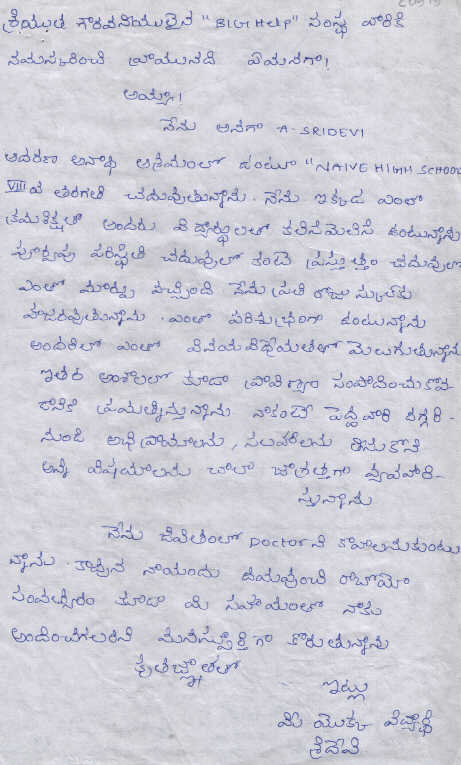 శ్రీయుత గౌరవనీయులైన "BIG Help" సంస్థ వారికి
నమస్కరించి వ్రాయునది ఏమనగా!
అయ్యా!
నేను అనగా A-SRIDEVI
ఆదరణ అనాథ ఆశ్రమంలో ఉంటూ "NAIVE HIGH SCHOOL
VIII వ తరగతి చదువుతున్నాను. నేను ఇక్కడ ఎంతో
క్రమశిక్షతో అందరు విద్యార్థులతో కలిసిమెలిసి ఉంటున్నాను
పూర్వపు పరిస్థితి చదువులో కంటే ప్రస్తుత్తం చదువులో
ఎంతో మార్పు వచ్చింది నేను ప్రతి రోజు స్కుల్‌కు
హాజరవుతున్నాను. ఎంతో పరిశుభ్రంగా ఉంటున్నాను
అందరిలో ఎంతో వినయ విధేయతలతో మెలుగుతున్నాను
ఇతర అంశాలలో కూడా ప్రావిణ్యం సంపాదించుకోవ-
డానికి ప్రయత్నిస్తున్నాను నాకంటే పెద్దవారి దగ్గరి-
నుండి అభిప్రాయాలను, సలహాలను తిసుకొని
అన్ని విషయాలను చాలా జాగ్రత్తగా వ్యవహరి-
స్తున్నాను
నేను జీవితంలో Doctor ని కావాలనుకుంటు
న్నాను. కావున నాయందు దయవుంచి రాబోయే
సంవత్సరం కూడా మి సహాయంతో నాకు
అందించగలరని మనస్ఫూర్తిగా కోరుతున్నాను
కృతజ్ఞతలతో
ఇట్లు
మీ యొక్క విద్యార్థి
శ్రీదేవి